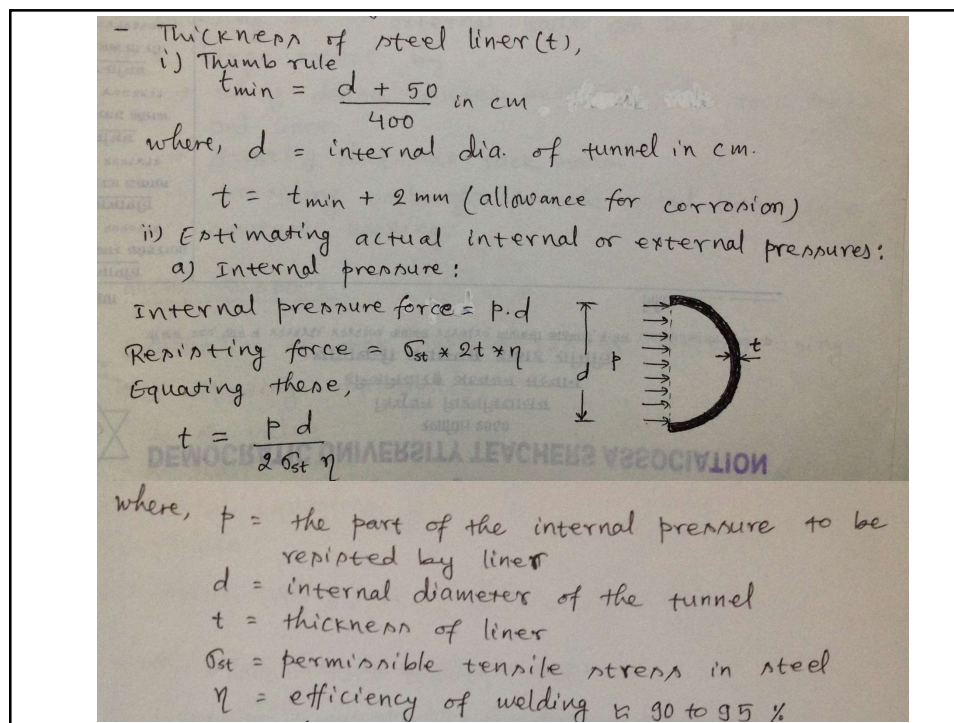 - Thickness of steel liner (t),
i) Thumb rule
tmin = d + 50 / 400 in cm
where, d = internal dia. of tunnel in cm.
t = tmin + 2 mm (allowance for corrosion)
ii) Estimating actual internal or external pressures:
a) Internal pressure:
Internal pressure force = p.d
Resisting force = σst * 2t * η
Equating these,
t = p d / 2 σst η
d
p
t
DEMOCRATIC UNIVERSITY TEACHERS ASSOCIATION
where, p = the part of the internal pressure to be
resisted by liner
d = internal diameter of the tunnel
t = thickness of liner
σst = permissible tensile stress in steel
η = efficiency of welding is 90 to 95 %